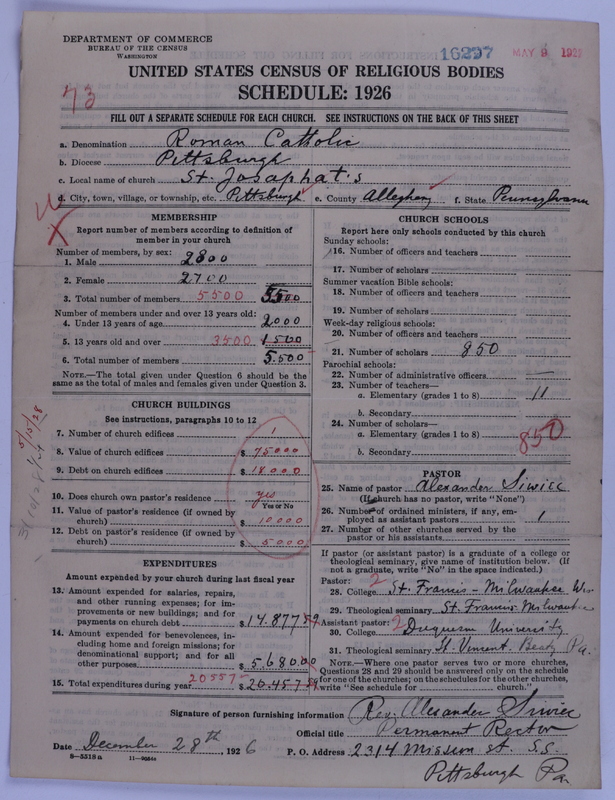 DEPARTMENT OF COMMERCE
BUREAU OF THE CENSUS
WASHINGTON
16297
MAY 9 192
UNITED STATES CENSUS OF RELIGIOUS BODIES
SCHEDULE: 1926
73
FILL OUT A SEPARATE SCHEDULE FOR EACH CHURCH. SEE INSTRUCTIONS ON THE BACK OF THIS SHEET
a. Denomination Roman Catholic
b. Diocese Pittsburgh
c. Local name of church St. Josaphat's
d. City, town, village, or township, etc. Pittsburgh e. County Allegheny f. State Pennsylvania
MEMBERSHIP
Report number of members according to definition of
member in your church
Number of members, by sex:
1. Male 2800
2. Female 2700
3. Total number of members 5500 5500
Number of members under and over 13 years old:
4. Under 13 years of age 2000
5. 13 years old and over 3500 1500
6. Total number of members 5.500
NOTE.—The total given under Question 6 should be the
same as the total of males and females given under Question 3.
CHURCH BUILDINGS
See instructions, paragraphs 10 to 12
7. Number of church edifices 1
8. Value of church edifices $ 75000
9. Debt on church edifices $ 18.000
10. Does church own pastor's residence yes
Yes or No
11. Value of pastor's residence (if owned by
church) $ 10000
12. Debt on pastor's residence (if owned by
church) $ 5000
5/15/28
EXPENDITURES
Amount expended by your church during last fiscal year
13. Amount expended for salaries, repairs,
and other running expenses; for im-
provements or new buildings; and for
payments on church debt $ 14.877 59
14. Amount expended for benevolences, in-
cluding home and foreign missions; for
denominational support; and for all
other purposes $ 5.680 00
15. Total expenditures during year 20557 $ 20.457 59
CHURCH SCHOOLS
Report here only schools conducted by this church
Sunday schools:
16. Number of officers and teachers
17. Number of scholars
Summer vacation Bible schools:
18. Number of officers and teachers
19. Number of scholars
Week-day religious schools:
20. Number of officers and teachers
21. Number of scholars 850
Parochial schools:
22. Number of administrative officers —
23. Number of teachers—
a. Elementary (grades 1 to 8) 11
b. Secondary
24. Number of scholars—
a. Elementary (grades 1 to 8) 850
b. Secondary
PASTOR
25. Name of pastor Alexander Siwiec
(If church has no pastor, write "None")
26. Number of ordained ministers, if any, em-
ployed as assistant pastors 1
27. Number of other churches served by the
pastor or his assistants
If pastor (or assistant pastor) is a graduate of a college or
theological seminary, give name of institution below. (If
not a graduate, write "No" in the space indicated.)
Pastor: 2
28. College St. Francis - Milwaukee Wis
29. Theological seminary St. Francis Milwaukee
Assistant pastor: 2
30. College Duquesne University
31. Theological seminary St. Vincent. Beatty Pa.
NOTE.—Where one pastor serves two or more churches,
Questions 28 and 29 should be answered only on the schedule
for one of the churches; on the schedules for the other churches,
write "See schedule for church."
Signature of person furnishing information Rev. Alexander Siwiec
Official title Permanent Rector
Date December 28th, 1926 P. O. Address 2314 Mission st. S.S.
8-5518a
Pittsburgh Pa